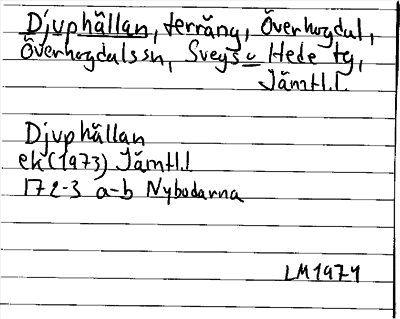 Djuphällan, terräng, Överhogdal,
Överhogdalssn, Svegs o Hede tg,
Jämtl.l.
Djuphällan
ek (1973) Jämtl.l
172-3 a-b Nybodarna
LM 1974